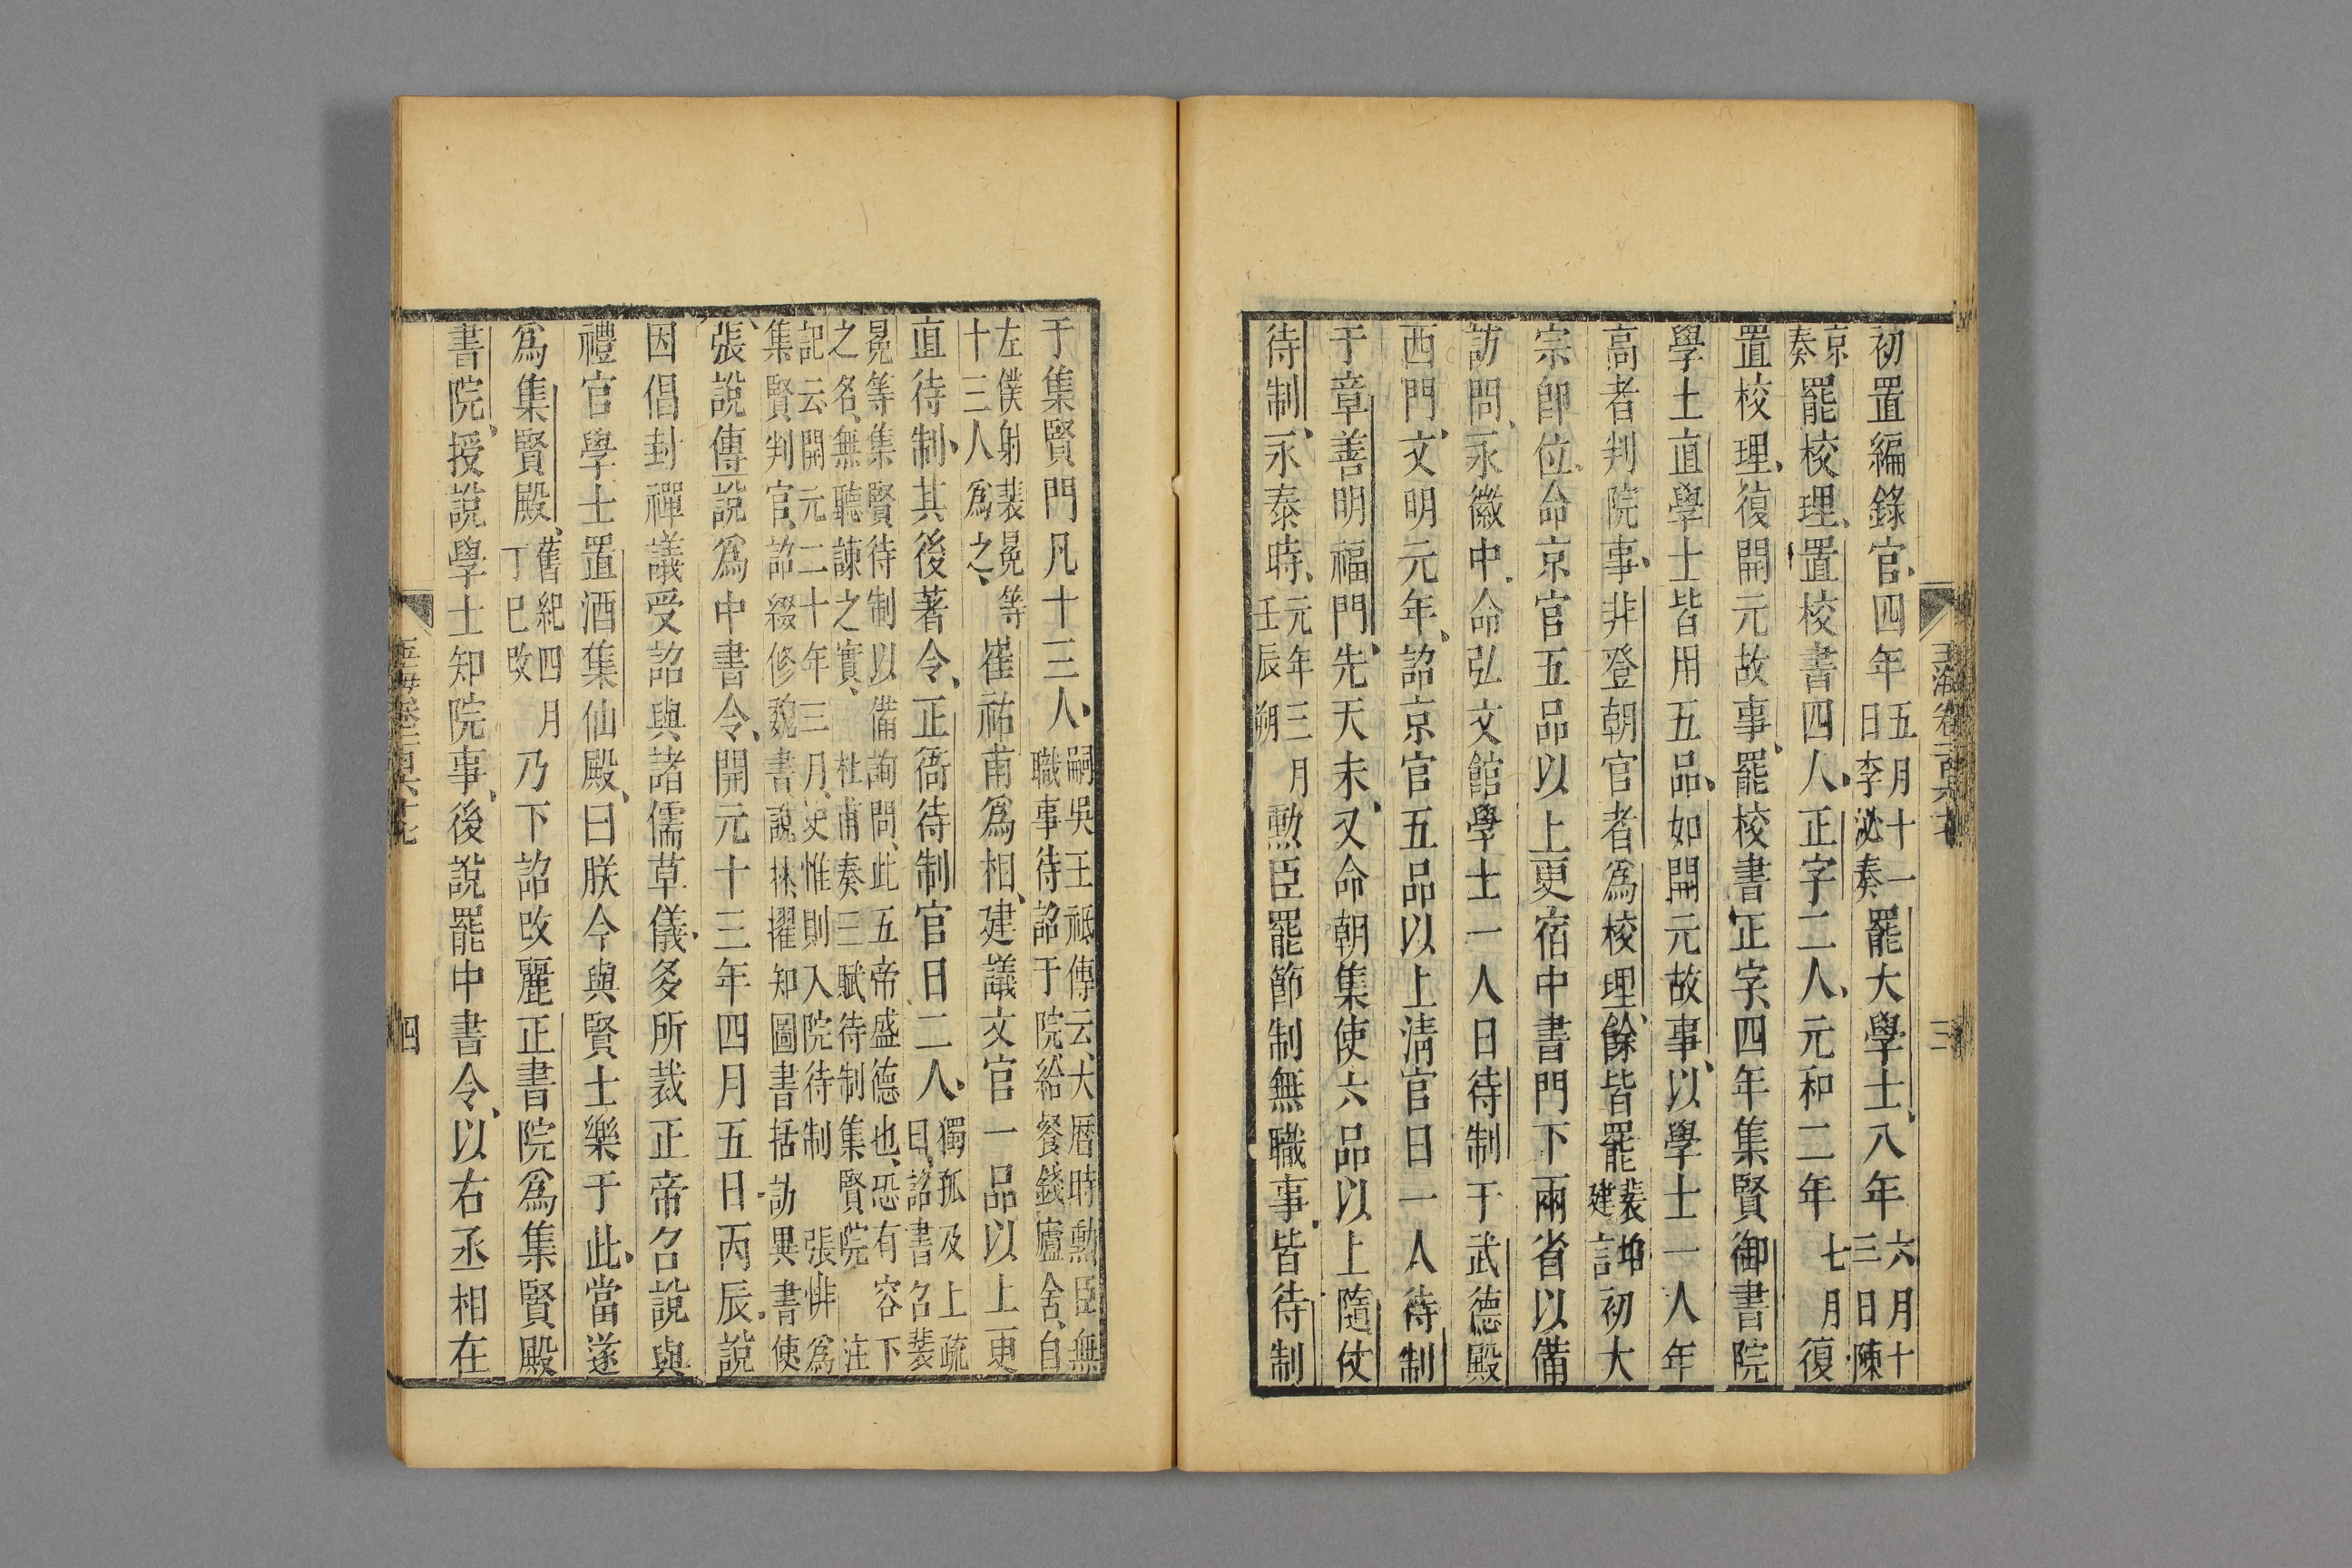 初置編錄官四年五月十一日李泌奏罷大學士八年六月十三日陳
京奏罷校理置校書四人正字二人元和二年七月復
置校理復開元故事罷校書正字四年集賢御書院
學士直學士皆用五品如開元故事以學士一人年
高者判院事非登朝官者爲校理餘皆罷裴垍建言初大
宗卽位命京官五品以上更宿中書門下兩省以備
訪問永徽中命弘文館學士一人日待制于武德殿
西門文明元年詔京官五品以上清官日一人待制
于章善明福門先天末又命朝集使六品以上隨仗
待制永泰時元年三月壬辰朔勲臣罷節制無職事皆待制
玉海卷一百六十七
三
于集賢門凡十三人嗣吳王祗傳云大曆時勲臣無職事待詔于院給餐錢廬舍自
左僕射裴冕等十三人爲之崔祐甫爲相建議文官一品以上更
直待制其後著令正衙待制官日二人獨孤及上疏曰詔書召裴
冕等集賢待制以備詢問此五帝盛德也恐有容下之名無聽諫之實杜甫奏三賦待制集賢院注
記云開元二十年三月史惟則入院待制張悱爲集賢判官詔綴修魏書說㧞擢知圖書括訪異書使
張說傳說爲中書令開元十三年四月五日丙辰說
因倡封禪議受詔與諸儒草儀多所裁正帝召說與
禮官學士置酒集仙殿曰朕今與賢士樂于此當遂
爲集賢殿舊紀四月丁巳改乃下詔改麗正書院爲集賢殿
書院授說學士知院事後說罷中書令以右丞相在
玉海卷一百六十七
四